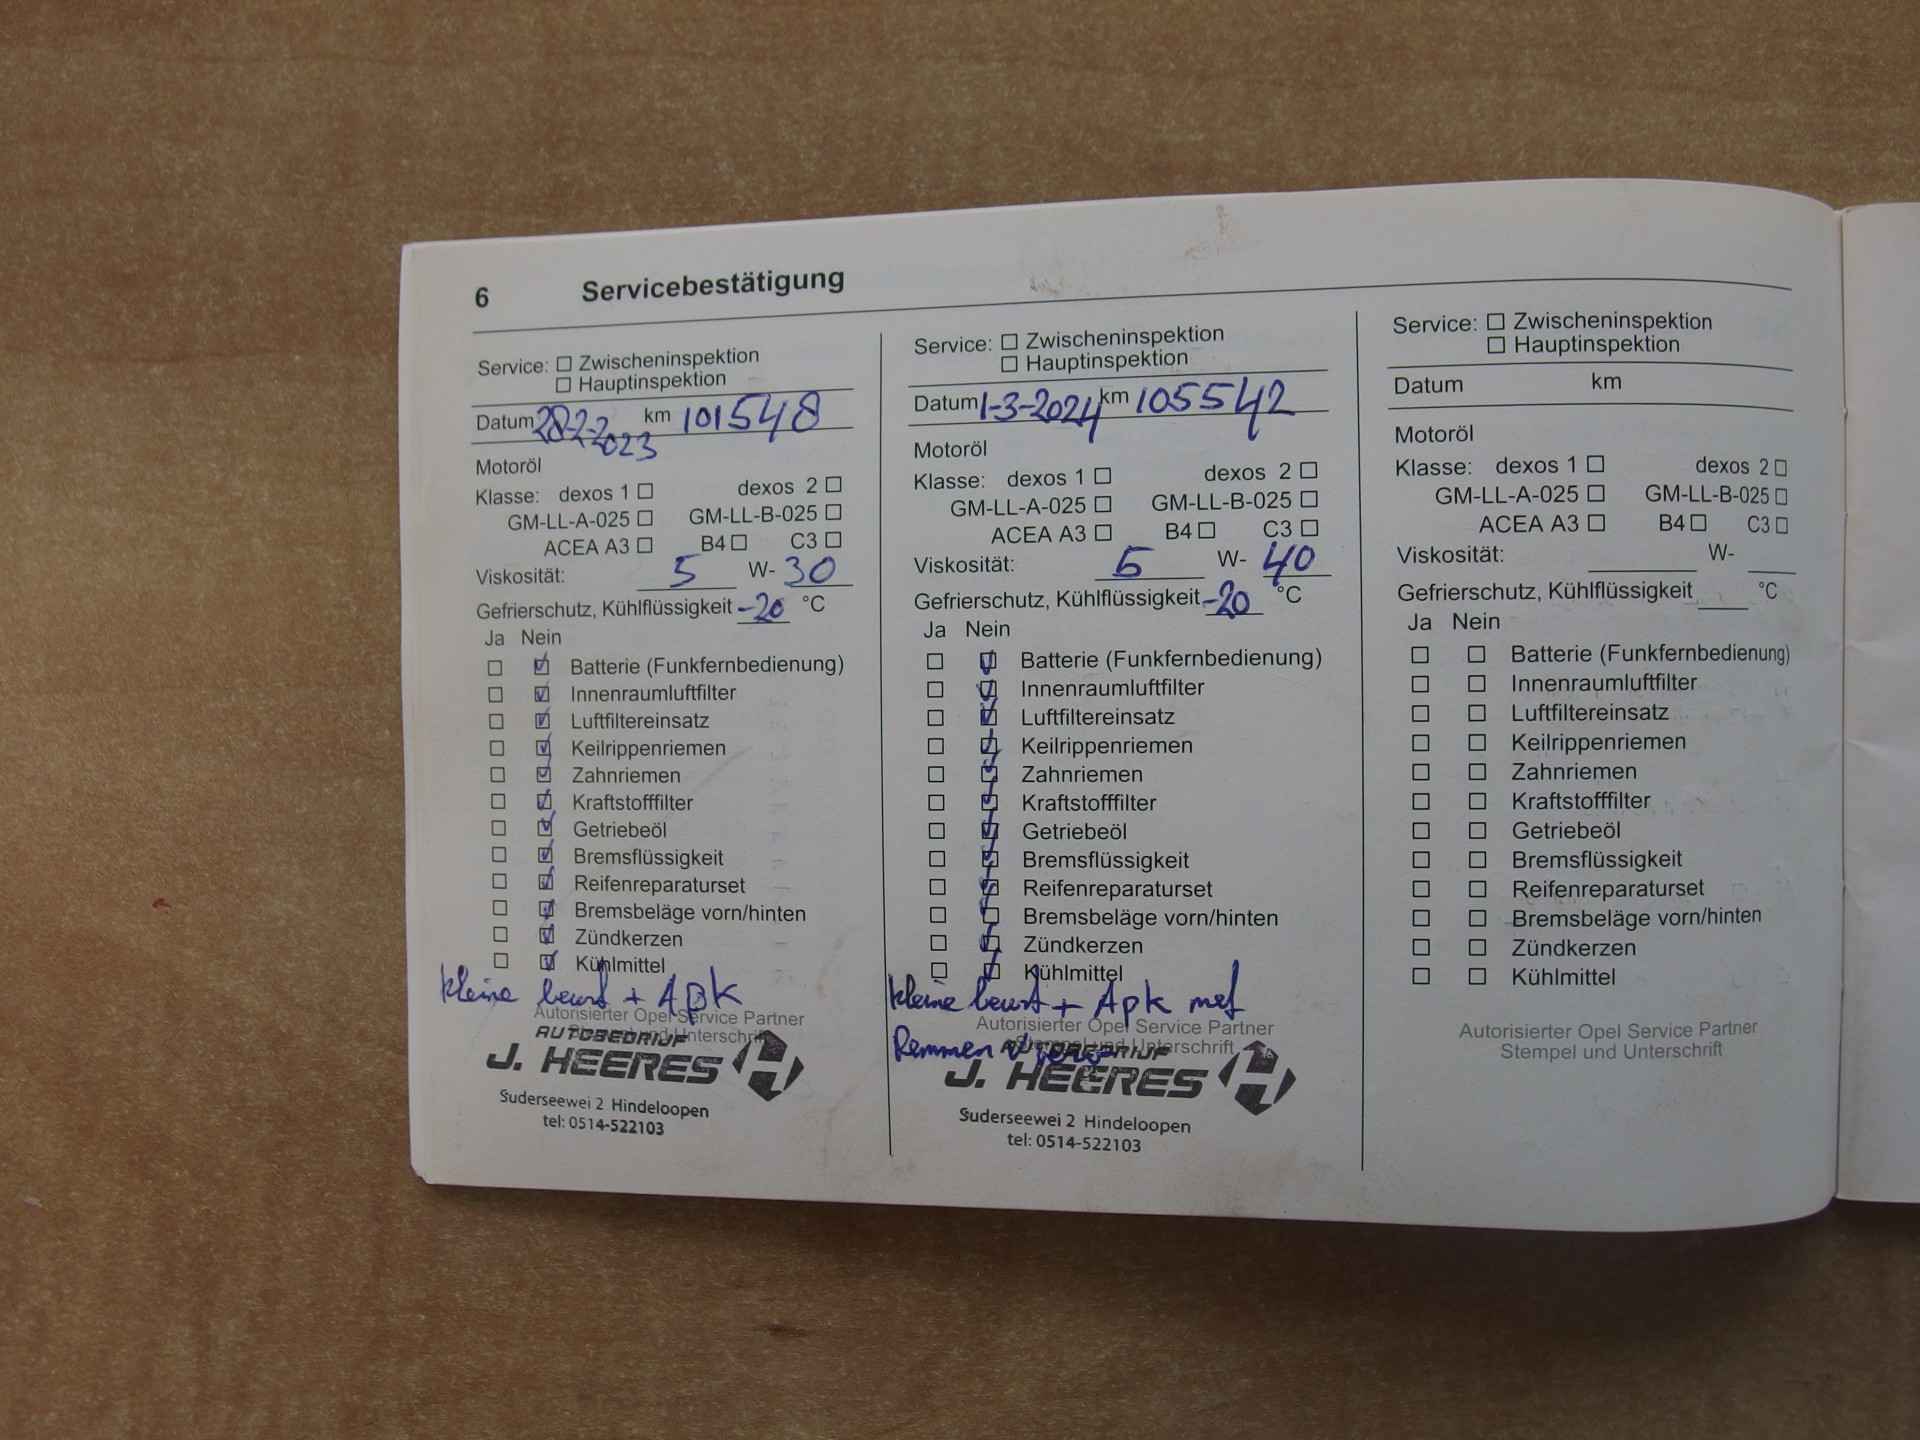 6 Servicebestätigung
Service: ☐ Zwischeninspektion
☐ Hauptinspektion
Datum 28-2-2023 km 101548
Motoröl
Klasse: dexos 1 ☐ dexos 2 ☐
GM-LL-A-025 ☐ GM-LL-B-025 ☐
ACEA A3 ☐ B4 ☐ C3 ☐
Viskosität: 5 W- 30
Gefrierschutz, Kühlflüssigkeit -20 °C
Ja Nein
☐ ☑ Batterie (Funkfernbedienung)
☐ ☑ Innenraumluftfilter
☐ ☑ Luftfiltereinsatz
☐ ☑ Keilrippenriemen
☐ ☑ Zahnriemen
☐ ☑ Kraftstofffilter
☐ ☑ Getriebeöl
☐ ☑ Bremsflüssigkeit
☐ ☑ Reifenreparaturset
☐ ☑ Bremsbeläge vorn/hinten
☐ ☑ Zündkerzen
☐ ☑ Kühlmittel
kleine beurt + Apk
Autorisierter Opel Service Partner
Stempel und Unterschrift
AUTOBEDRIJF
J. HEERES
Suderseewei 2 Hindeloopen
tel: 0514-522103
Service: ☐ Zwischeninspektion
☐ Hauptinspektion
Datum 1-3-2024 km 105542
Motoröl
Klasse: dexos 1 ☐ dexos 2 ☐
GM-LL-A-025 ☐ GM-LL-B-025 ☐
ACEA A3 ☐ B4 ☐ C3 ☐
Viskosität: 5 W- 40
Gefrierschutz, Kühlflüssigkeit -20 °C
Ja Nein
☐ ☑ Batterie (Funkfernbedienung)
☐ ☑ Innenraumluftfilter
☐ ☑ Luftfiltereinsatz
☐ ☑ Keilrippenriemen
☐ ☑ Zahnriemen
☐ ☑ Kraftstofffilter
☐ ☑ Getriebeöl
☐ ☑ Bremsflüssigkeit
☐ ☑ Reifenreparaturset
☐ ☐ Bremsbeläge vorn/hinten
☐ ☑ Zündkerzen
☐ ☑ Kühlmittel
kleine beurt + Apk met
Remmen
Autorisierter Opel Service Partner
Stempel und Unterschrift
AUTOBEDRIJF
J. HEERES
Suderseewei 2 Hindeloopen
tel: 0514-522103
Service: ☐ Zwischeninspektion
☐ Hauptinspektion
Datum km
Motoröl
Klasse: dexos 1 ☐ dexos 2 ☐
GM-LL-A-025 ☐ GM-LL-B-025 ☐
ACEA A3 ☐ B4 ☐ C3 ☐
Viskosität: W-
Gefrierschutz, Kühlflüssigkeit °C
Ja Nein
☐ ☐ Batterie (Funkfernbedienung)
☐ ☐ Innenraumluftfilter
☐ ☐ Luftfiltereinsatz
☐ ☐ Keilrippenriemen
☐ ☐ Zahnriemen
☐ ☐ Kraftstofffilter
☐ ☐ Getriebeöl
☐ ☐ Bremsflüssigkeit
☐ ☐ Reifenreparaturset
☐ ☐ Bremsbeläge vorn/hinten
☐ ☐ Zündkerzen
☐ ☐ Kühlmittel
Autorisierter Opel Service Partner
Stempel und Unterschrift